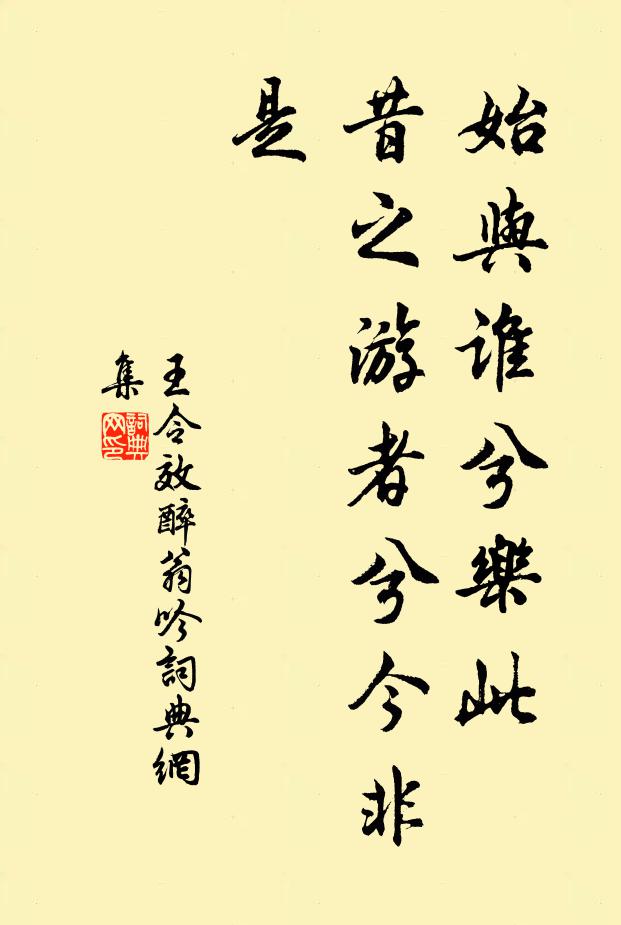 始與誰兮樂此
昔之游者兮今非
是
王令效醉翁吟詞典網
集
詞典
网印